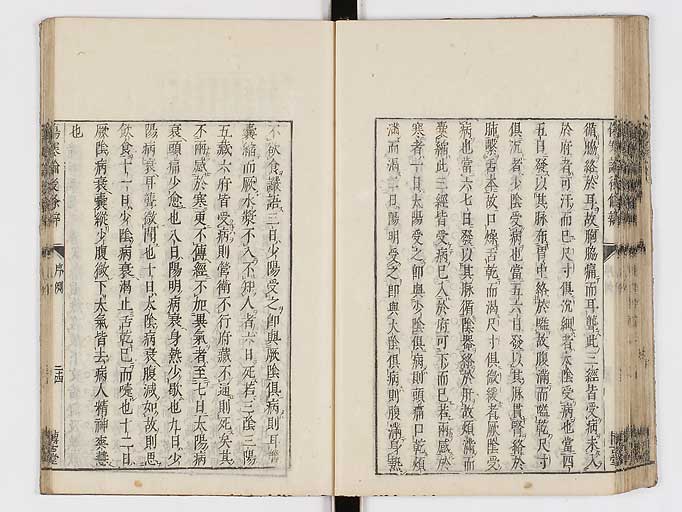 循脇絡於耳故胸脇痛而耳聾此三經皆受病未入
於府者可汗而已尺寸俱沉細者太陰受病也當四
五日發以其脈布胃中絡於嗌故腹滿而嗌乾尺寸
俱沉者少陰受病也當五六日發以其脈貫腎絡於
肺繫舌本故口燥舌乾而渴尺寸俱微緩者厥陰受
病也當六七日發以其脈循陰器絡於肝故煩滿而
囊縮此三經皆受病已入於府可下而已若兩感於
寒者一日太陽受之即與少陰俱病則頭痛口乾煩
滿而渴二日陽明受之即與太陰俱病則腹滿身熱
不欲食讝語三日少陽受之即與厥陰俱病則耳聾
囊縮而厥水漿不入不知人者六日死若三陰三陽
五藏六府皆受病則營衛不行府藏不通則死矣其
不兩感於寒更不傳經不加異氣者至七日太陽病
衰頭痛少愈也八日陽明病衰身熱少歇也九日少
陽病衰耳聾微聞也十日太陰病衰腹減如故則思
飲食十一日少陰病衰渴止舌乾已而嚏也十二日
厥陰病衰囊縱少腹微下大氣皆去病人精神爽慧
也
傷寒論後條辨 序例